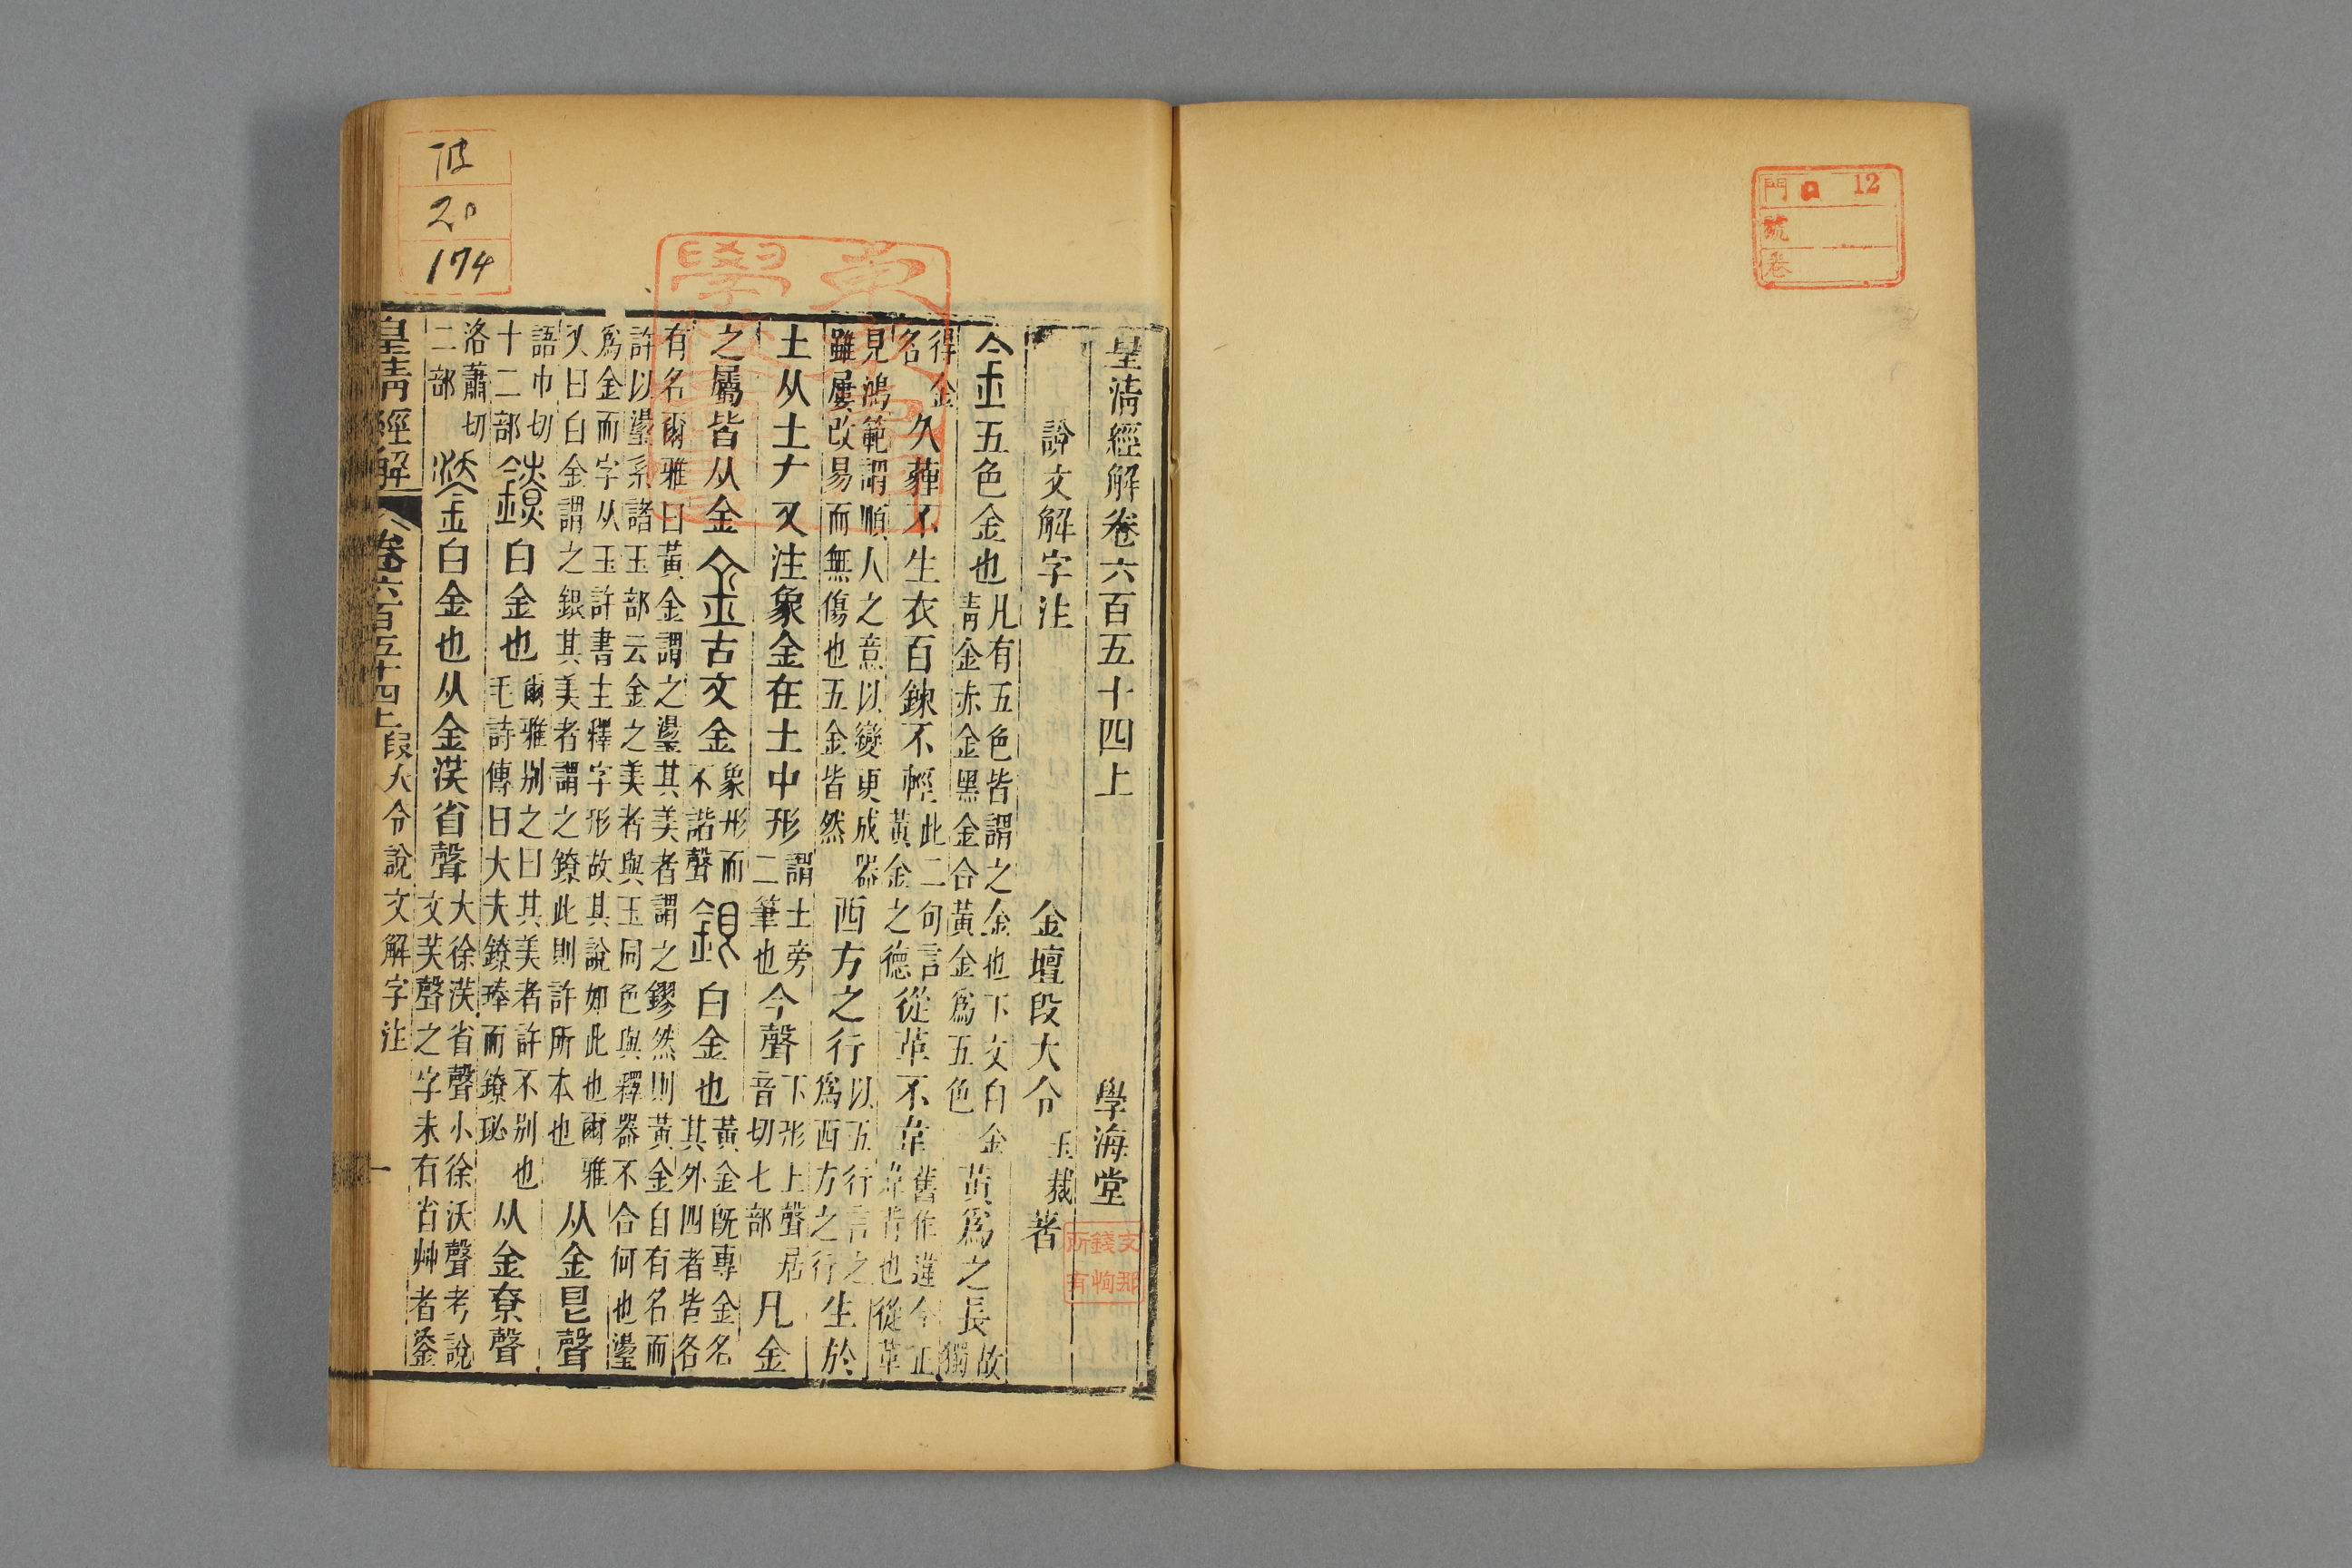 皇清經解卷六百五十四上 學海堂
說文解字注 金壇段大令玉裁著
金五色金也凡有五色皆謂之金也下文白金青金赤金黑金合黃金爲五色黃爲之長故獨
得金名久薶不生衣百鍊不輕此二句言黃金之德從革不韋舊作違今正韋背也從革
見鴻範謂順人之意以變更成器雖屢改易而無傷也五金皆然西方之行以五行言之爲西方之行生於
土从土𠂇又注象金在土中形謂土旁二筆也今聲下形上聲居音切七部凡金
之屬皆从金金古文金象形而不諧聲銀白金也黃金既專金名其外四者皆各
有名爾雅曰黃金謂之璗其美者謂之鏐然則黃金自有名而許以璗系諸玉部云金之美者與玉同色與釋器不合何也璗
爲金而字从玉許書主釋字形故其說如此也爾雅又曰白金謂之銀其美者謂之鐐此則許所本也从金㫐聲
語巾切十二部鐐白金也爾雅別之曰其美者許不別也毛詩傳曰大夫鐐琫而鐐珌从金尞聲
洛蕭切二部鋈白金也从金𣵽省聲大徐𣵽省聲小徐沃聲考說文芺聲之字未有省艸者鋈
皇清經解 卷六百五十四上 段大令說文解字注 一
12
門
號
卷
20
174
文那
錢恂
所有